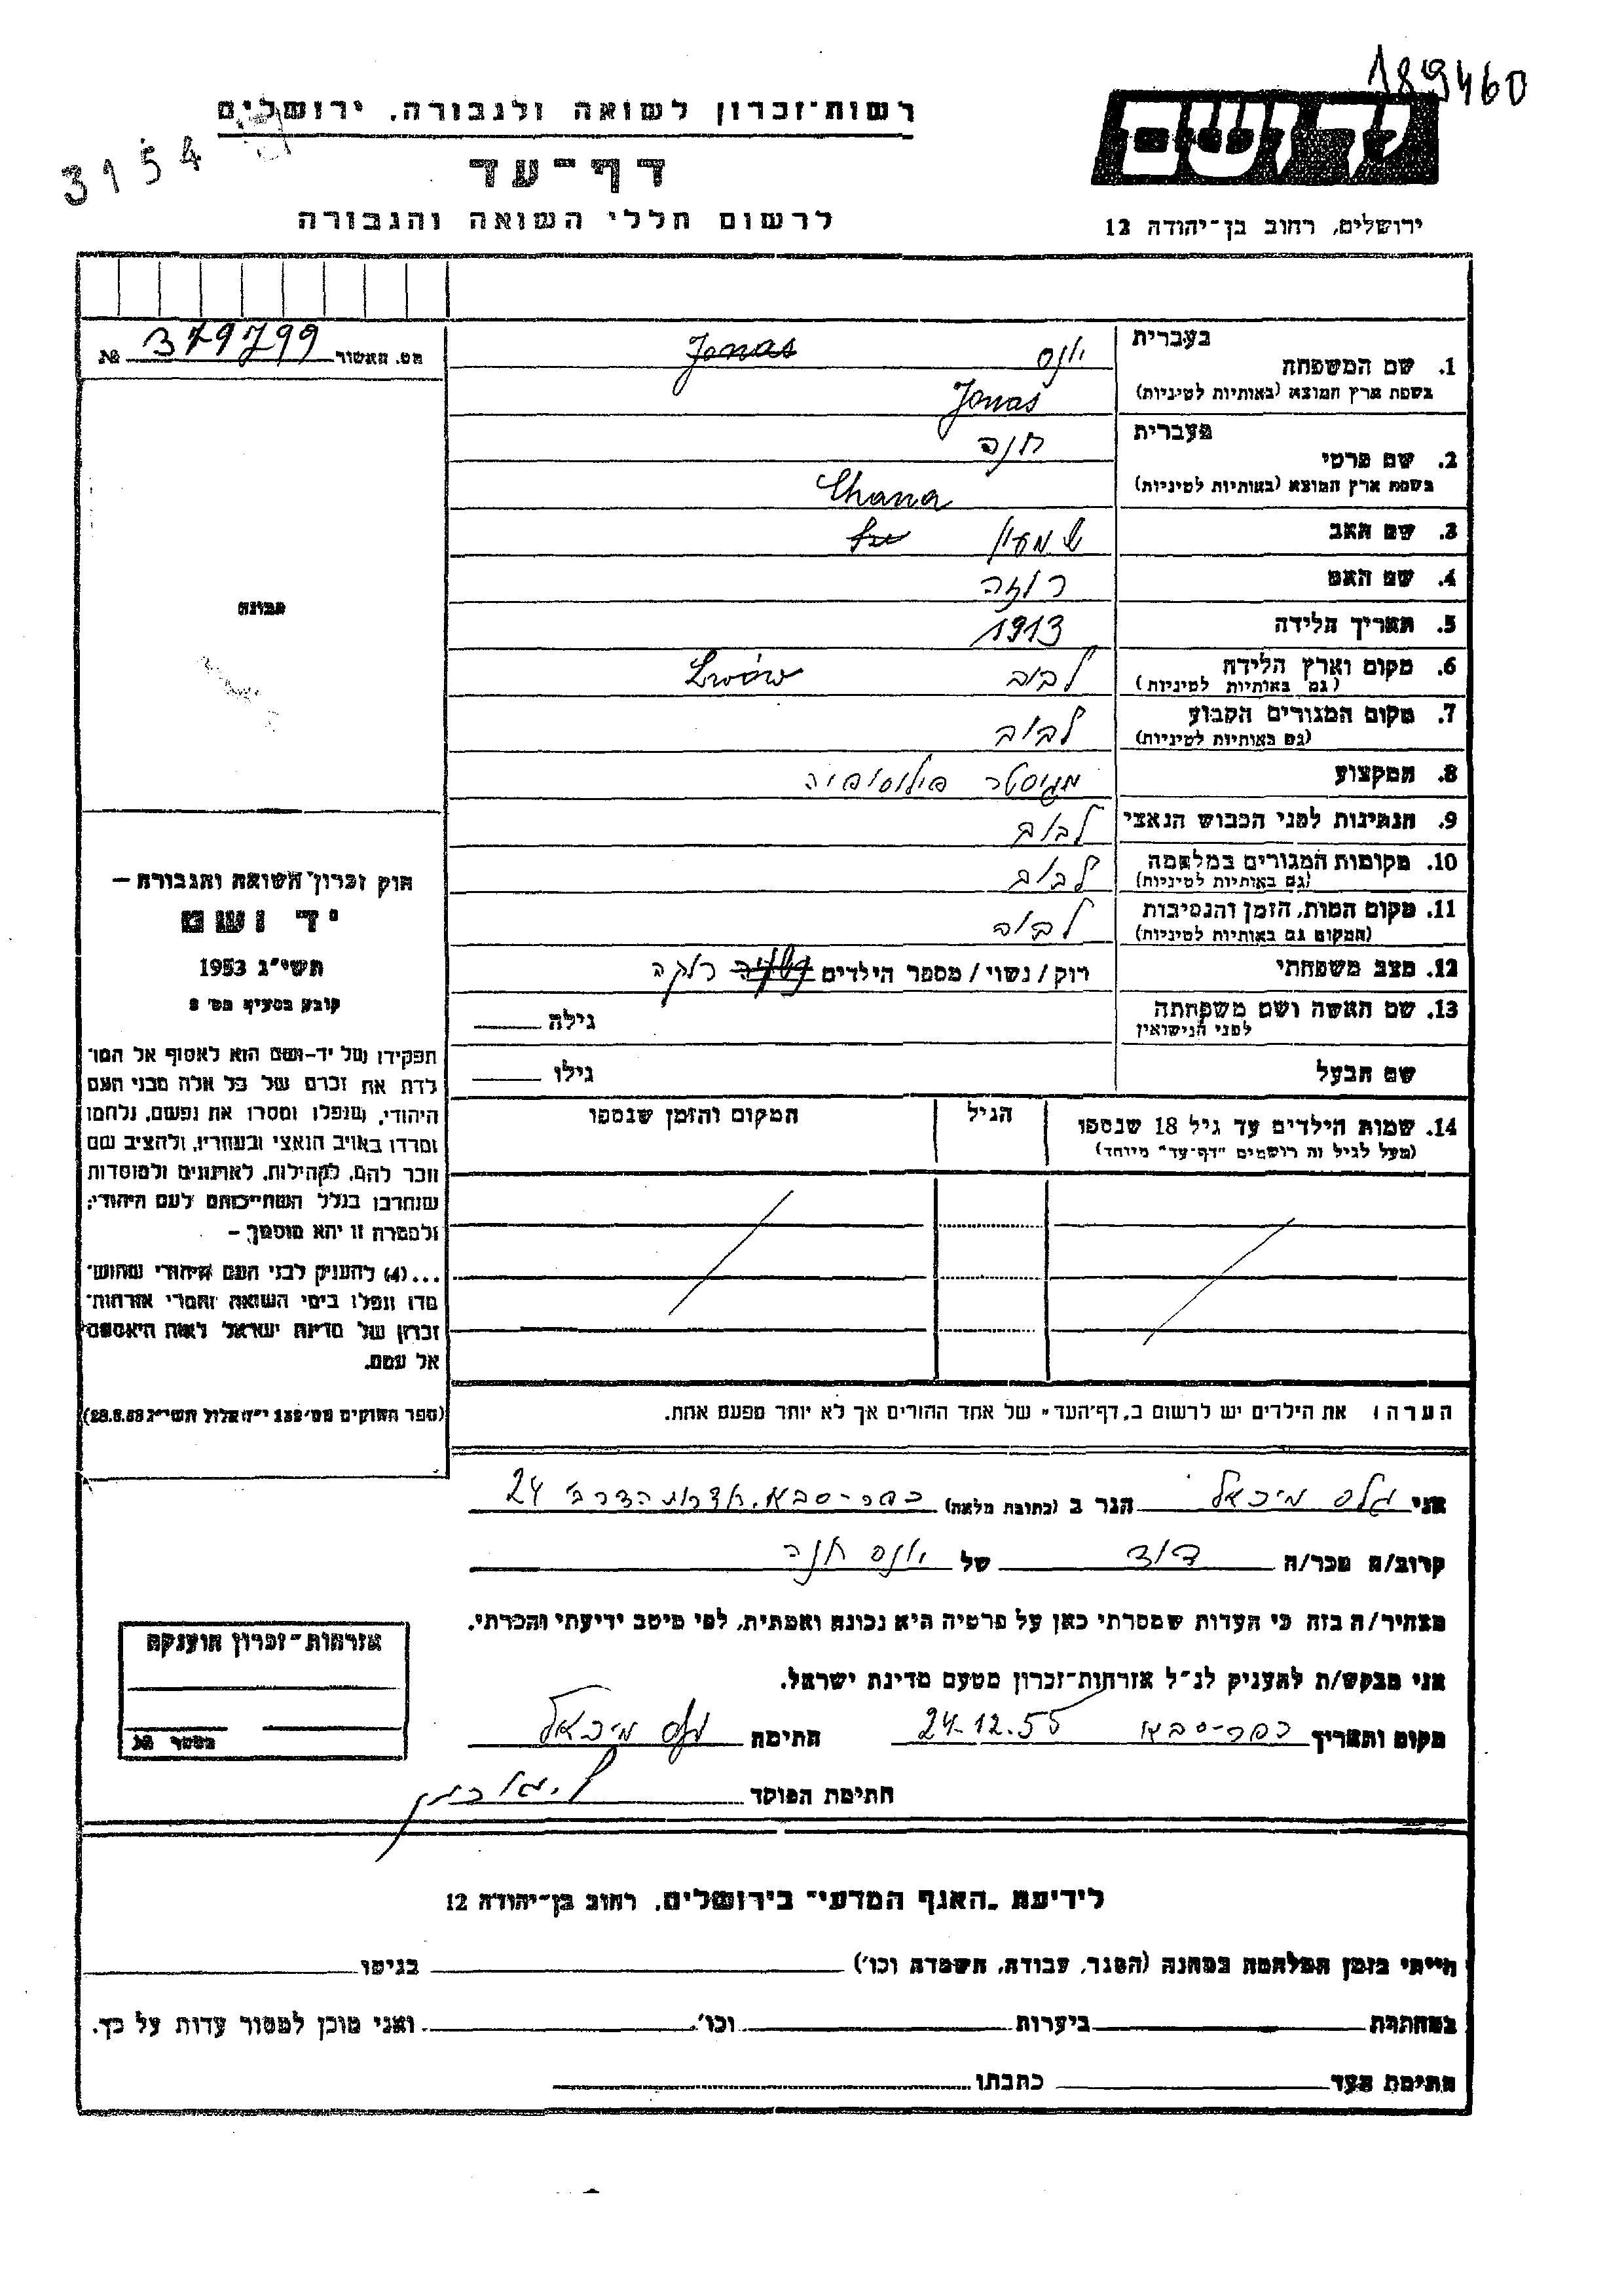 189460
רשות־זכרון לשואה ולגבורה, ירושלים
3154
דף־עד
לרשום חללי השואה והגבורה
יד ושם
ירושלים, רחוב בן־יהודה 12
מס. האשור 379799 №
בעברית
1. שם המשפחה יונס Jonas
בשפת ארץ המוצא (באותיות לטיניות) Jonas
בעברית
2. שם פרטי חנה
בשפת ארץ המוצא (באותיות לטיניות) Chana
3. שם האב שמעון
4. שם האם רוזה
5. תאריך הלידה 1913
6. מקום וארץ הלידה לבוב Lwów
(גם באותיות לטיניות)
7. מקום המגורים הקבוע לבוב
(גם באותיות לטיניות)
8. המקצוע מגיסטר פילוסופיה
9. הנתינות לפני הכבוש הנאצי לבוב
10. מקומות המגורים במלחמה לבוב
(גם באותיות לטיניות)
11. מקום המות, הזמן והנסיבות לבוב
(המקום גם באותיות לטיניות)
12. מצב משפחתי רוק/נשוי/מספר הילדים רוקה
13. שם האשה ושם משפחתה גילה
לפני הנישואין
שם הבעל גילו
14. שמות הילדים עד גיל 18 שנספו הגיל המקום והזמן שנספו
(מעל לגיל זה רושמים "דף־עד" מיוחד)
הערה: את הילדים יש לרשום ב"דף־העד" של אחד ההורים אך לא יותר מפעם אחת.
תמונה
חוק זכרון השואה והגבורה –
יד ושם
תשי"ג 1953
קובע בסעיף מס' 2
תפקידו של יד־ושם הוא לאסוף אל המו־
לדת את זכרם של כל אלה מבני העם
היהודי, שנפלו ומסרו את נפשם, נלחמו
ומרדו באויב הנאצי ובעוזריו, ולהציב שם
וזכר להם, לקהילות, לארגונים ולמוסדות
שנחרבו בגלל השתייכותם לעם היהודי;
ולמטרה זו יהא מוסמך –
...(4) להעניק לבני העם היהודי שהוש־
מדו ונפלו בימי השואה והמרי אזרחות־
זכרון של מדינת ישראל לאות היאספם
אל עמם.
(ספר החוקים מס' 132 י"ז אלול תשי"ג 28.8.53)
אני גלס מיכאל הגר ב (כתובת מלאה) כפר-סבא, שדרות הדר ב' 24
קרוב/ה מכר/ה דוד של יונס חנה
מצהיר/ה בזה כי העדות שמסרתי כאן על פרטיה היא נכונה ואמתית, לפי מיטב ידיעתי והכרתי.
אני מבקש/ת להעניק לנ"ל אזרחות־זכרון מטעם מדינת ישראל.
מקום ותאריך כפר-סבא 24.12.55 חתימה גלס מיכאל
חתימת הפוקד
אזרחות־זכרון הוענקה
מספר №
לידיעת "האגף המדעי" בירושלים, רחוב בן־יהודה 12
הייתי בזמן המלחמה במחנה (הסגר, עבודה, השמדה וכו') בגיטו
במחתרת ביערות וכו' ואני מוכן למסור עדות על כך.
חתימת העד כתבתו